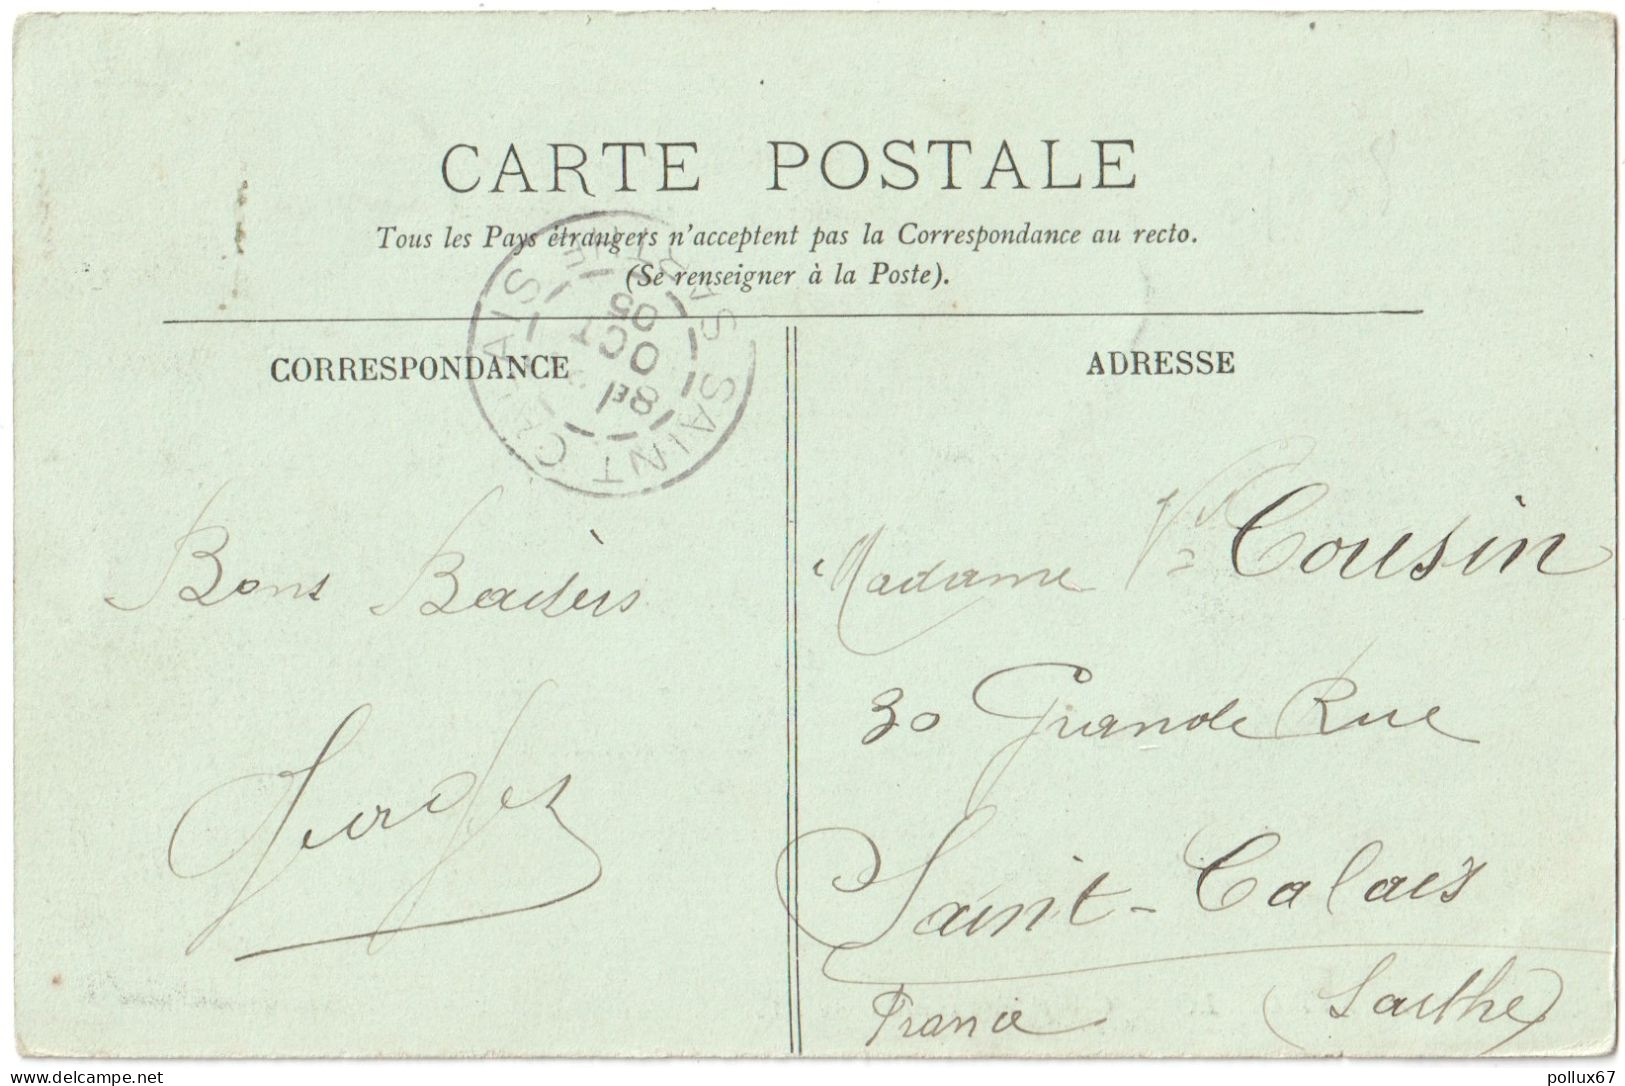 CARTE POSTALE
Tous les Pays étrangers n'acceptent pas la Correspondance au recto.
(Se renseigner à la Poste).
CORRESPONDANCE
SAINT CALAIS
8E
OCT
05
Bons Baisers
ADRESSE
Madame Ve Cousin
30 Grande Rue
Saint-Calais
(Sarthe)
France
delcampe.net
pollux67